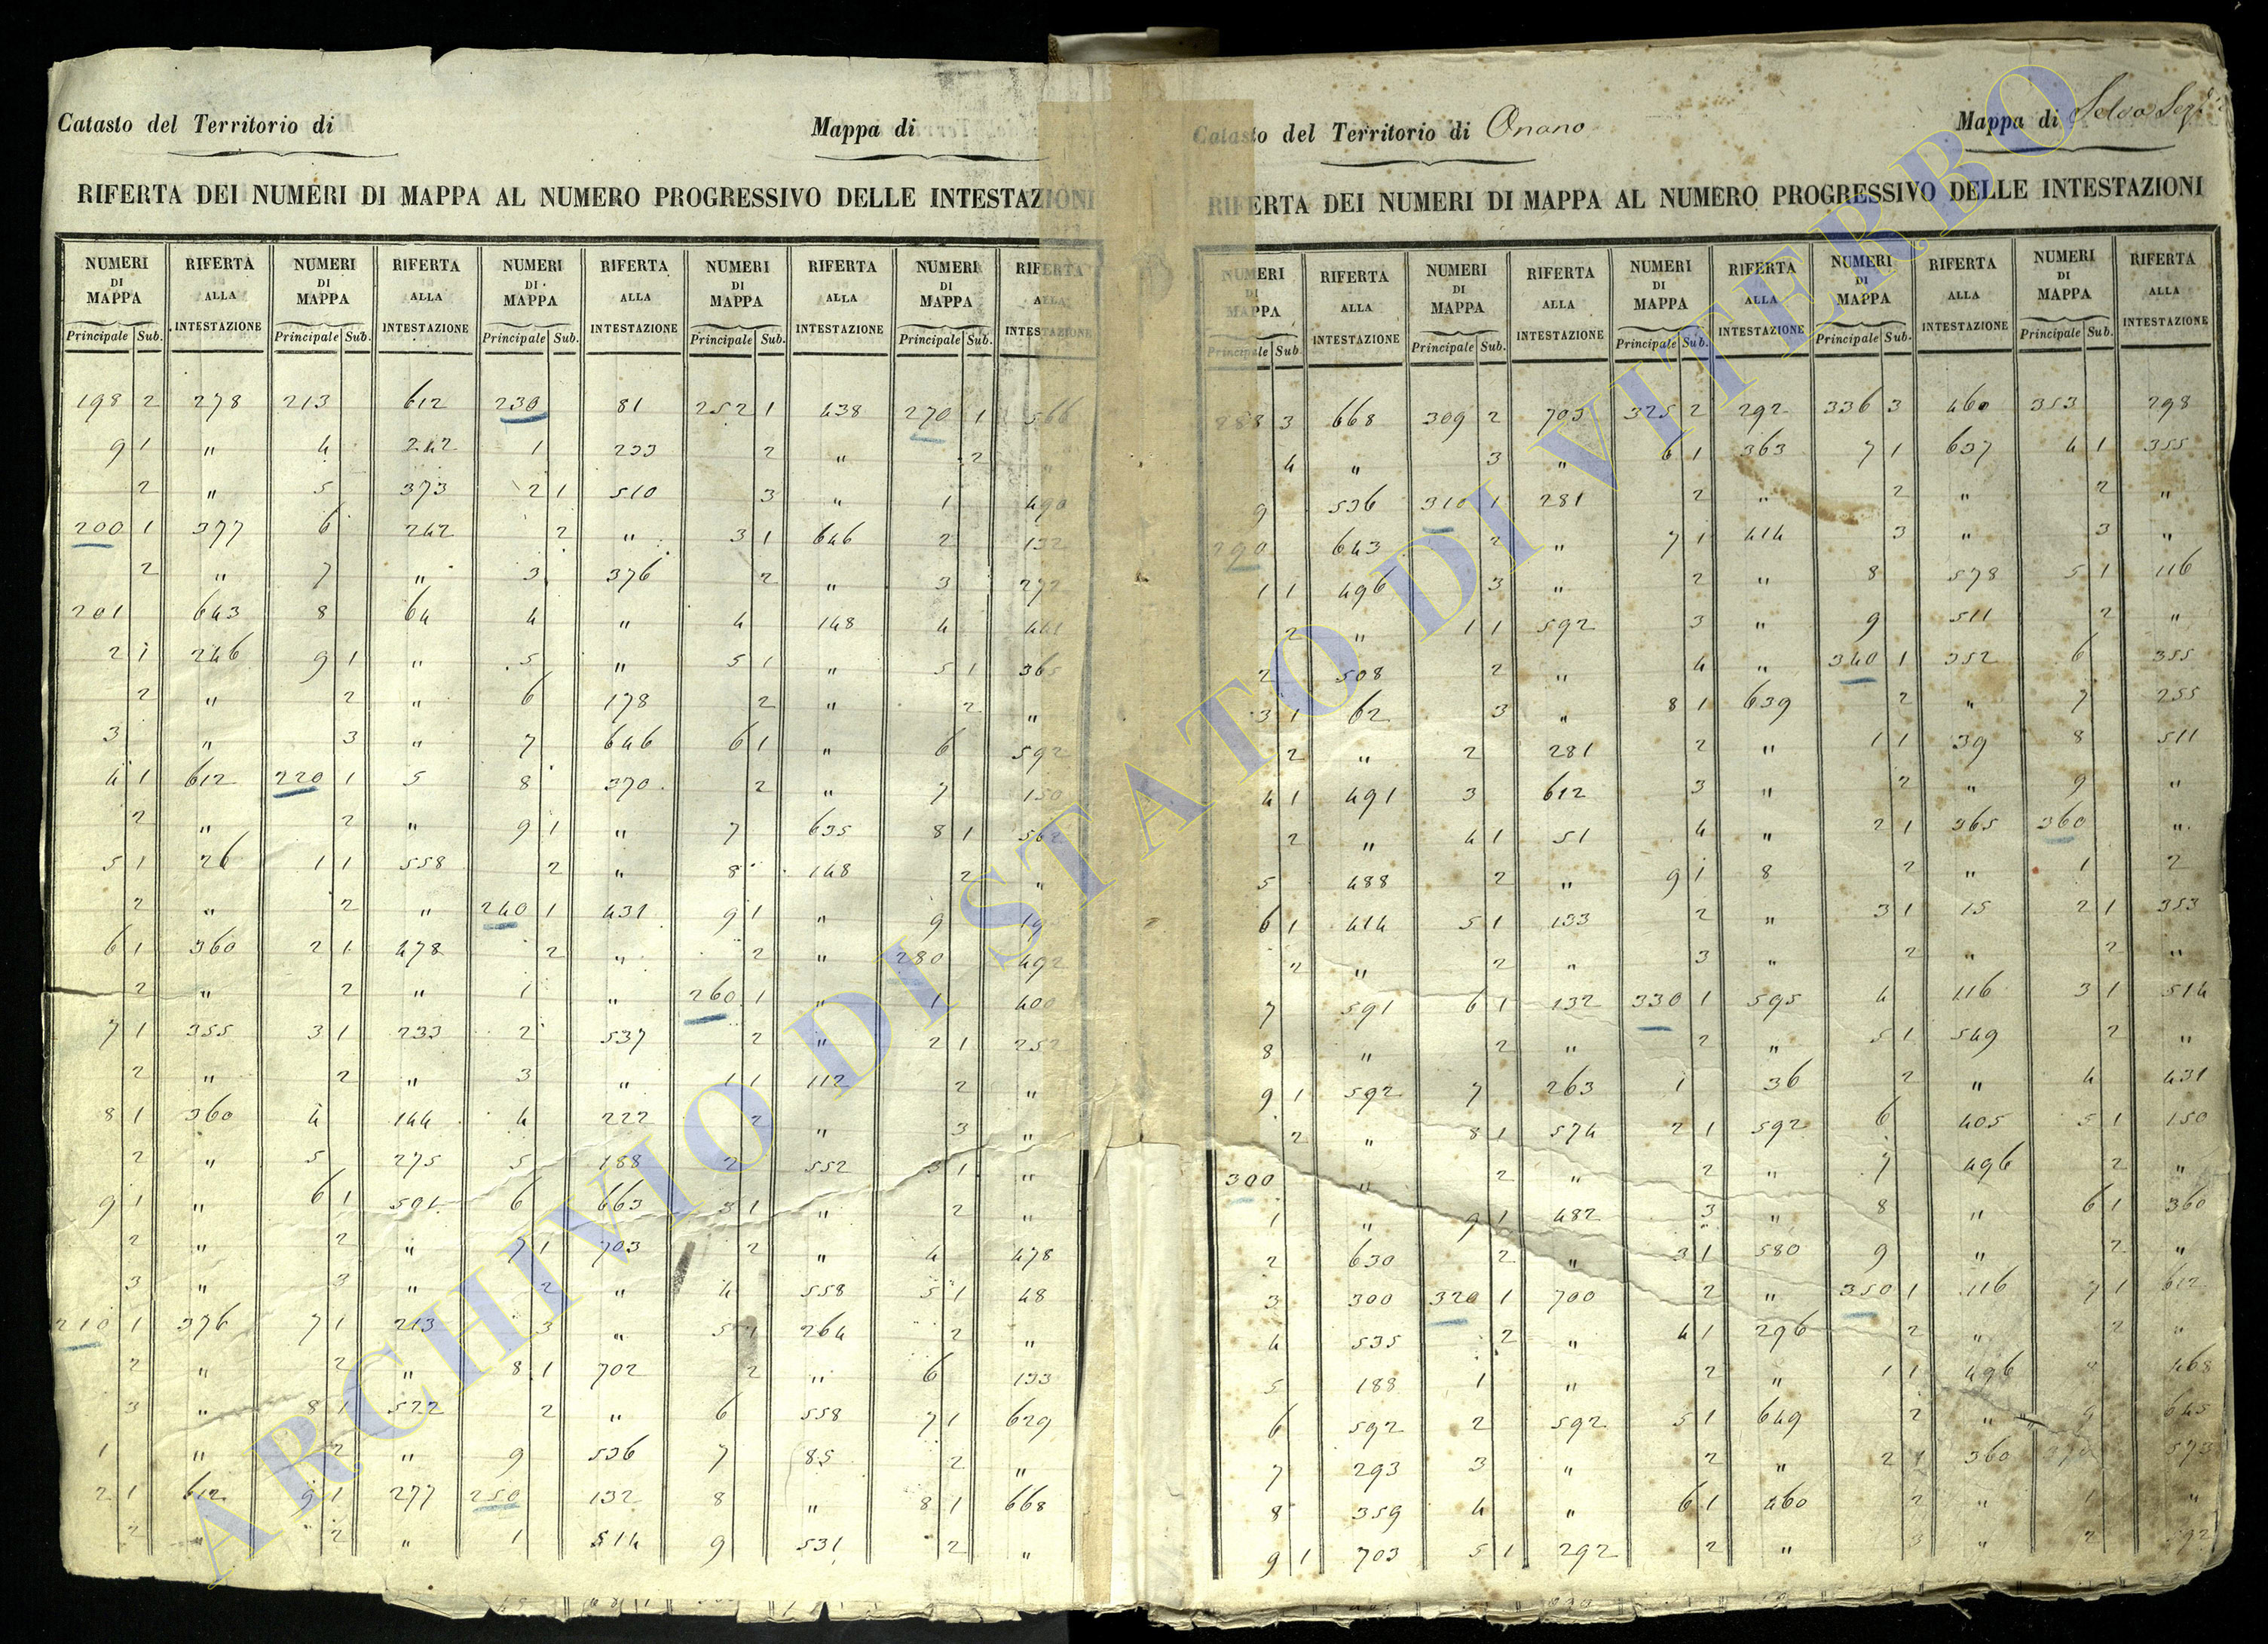 Catasto del Territorio di
Mappa di
RIFERTA DEI NUMERI DI MAPPA AL NUMERO PROGRESSIVO DELLE INTESTAZIONI
NUMERI DI MAPPA RIFERTA ALLA INTESTAZIONE NUMERI DI MAPPA RIFERTA ALLA INTESTAZIONE NUMERI DI MAPPA RIFERTA ALLA INTESTAZIONE NUMERI DI MAPPA RIFERTA ALLA INTESTAZIONE NUMERI DI MAPPA RIFERTA ALLA INTESTAZIONE
Principale Sub. Principale Sub. Principale Sub. Principale Sub. Principale Sub.
198 2 278 213 612 230 81 252 1 438 270 1 566
9 1 " 4 242 1 233 2 " 2 "
2 " 5 373 2 1 510 3 " 1 490
200 1 377 6 242 2 " 3 1 646 2 132
2 " 7 " 3 376 2 " 3 272
201 643 8 64 4 " 4 148 4 441
2 1 246 9 1 " 5 " 5 1 " 5 1 365
2 " 2 " 6 178 2 " 2 "
3 " 3 " 7 646 6 1 " 6 592
4 1 612 220 1 5 8 370 2 " 7 150
2 " 2 " 9 1 " 7 635 8 1 568
5 1 26 1 1 558 2 " 8 148 2 "
2 " 2 " 240 1 431 9 1 " 9 19
6 1 360 2 1 478 2 " 2 " 280 492
2 " 2 " 1 " 260 1 " 1 400
7 1 355 3 1 233 2 537 2 " 2 1 252
2 " 2 " 3 " 1 1 112 2 "
8 1 360 4 144 4 222 2 " 3 "
2 " 5 275 5 188 2 552 3 1 "
9 1 " 6 1 501 6 663 3 1 " 2 "
2 " 2 " 7 1 703 2 " 4 478
3 " 3 " 2 " 4 558 5 1 48
210 1 376 7 1 213 3 " 5 1 264 2 "
2 " 2 " 8 1 702 2 " 6 133
3 " 8 1 522 2 " 6 558 7 1 629
1 " 2 " 9 536 7 85 2 "
2 1 612 9 1 277 250 132 8 " 8 1 668
2 " 2 " 1 514 9 531 2 "
Catasto del Territorio di Onano
Mappa di Selva
RIFERTA DEI NUMERI DI MAPPA AL NUMERO PROGRESSIVO DELLE INTESTAZIONI
NUMERI DI MAPPA RIFERTA ALLA INTESTAZIONE NUMERI DI MAPPA RIFERTA ALLA INTESTAZIONE NUMERI DI MAPPA RIFERTA ALLA INTESTAZIONE NUMERI DI MAPPA RIFERTA ALLA INTESTAZIONE NUMERI DI MAPPA RIFERTA ALLA INTESTAZIONE
Principale Sub. Principale Sub. Principale Sub. Principale Sub. Principale Sub.
288 3 668 309 2 703 325 2 292 336 3 460 353 298
4 " 3 " 6 1 363 7 1 637 4 1 355
9 536 310 1 281 2 " 2 " 2 "
290 643 2 " 7 1 414 3 " 3 "
1 1 496 3 " 2 " 8 578 5 1 116
2 " 1 1 592 3 " 9 511 2 "
2 508 2 " 4 " 340 1 352 6 355
3 1 62 3 " 8 1 639 2 " 7 255
2 " 2 281 2 " 1 1 39 8 511
4 1 491 3 612 3 " 2 " 9 "
2 " 4 1 51 4 " 2 1 365 360 "
5 488 2 " 9 1 8 2 " 1 2
6 1 414 5 1 133 2 " 3 1 15 2 1 353
2 " 2 " 3 " 2 " 2 "
7 591 6 1 132 330 1 595 4 116 3 1 514
8 " 2 " 2 " 5 1 549 2 "
9 1 592 7 263 1 36 2 " 4 431
2 " 8 1 574 2 1 592 6 405 5 1 150
300 " 2 " 2 " 7 496 2 "
1 " 9 1 482 3 " 8 " 6 1 360
2 630 2 " 3 1 580 9 " 2 "
3 300 320 1 700 2 " 350 1 116 7 1 612
4 535 2 " 4 1 296 2 " 2 "
5 188 1 " 2 " 1 1 496 8 468
6 592 2 592 5 1 649 2 " 9 645
7 293 3 " 2 " 2 1 360 370 573
8 359 4 " 6 1 460 2 " 1 "
9 1 703 5 1 292 2 " 3 " 2 592
ARCHIVIO DI STATO DI VITERBO